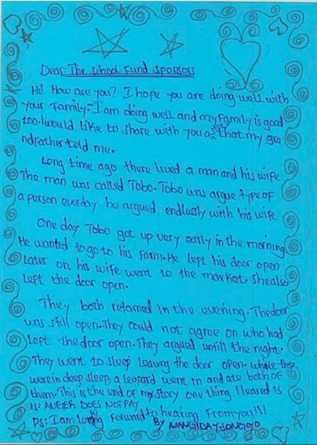 Dear The School Fund Sponsors
Hi! How are you? I hope you are doing well with
your family. I am doing well and my family is good
too. I would like to share with you a that my gra
ndfather told me.
Long time ago there lived a man and his wife
The man was called Tobo. Tobo was argue type of
a person everday he argued endlessly with his wife
One day Tobo got up very early in the morning
He wanted to go to his farm. He left his door open
Later on his wife went to the market she also
Left the door open.
They both returned in the evening. The door
was still open. They could not agree on who had
Left the door open. They argued untill the night.
They went to sleep leaving the door open. while they
were in deep sleep, a leopard went in and ate both of
them. This is the end of my story one thing I leared is
is: ANGER DOES NOT PAY.
Ps: I am looking forward to hearing from you!!!
By